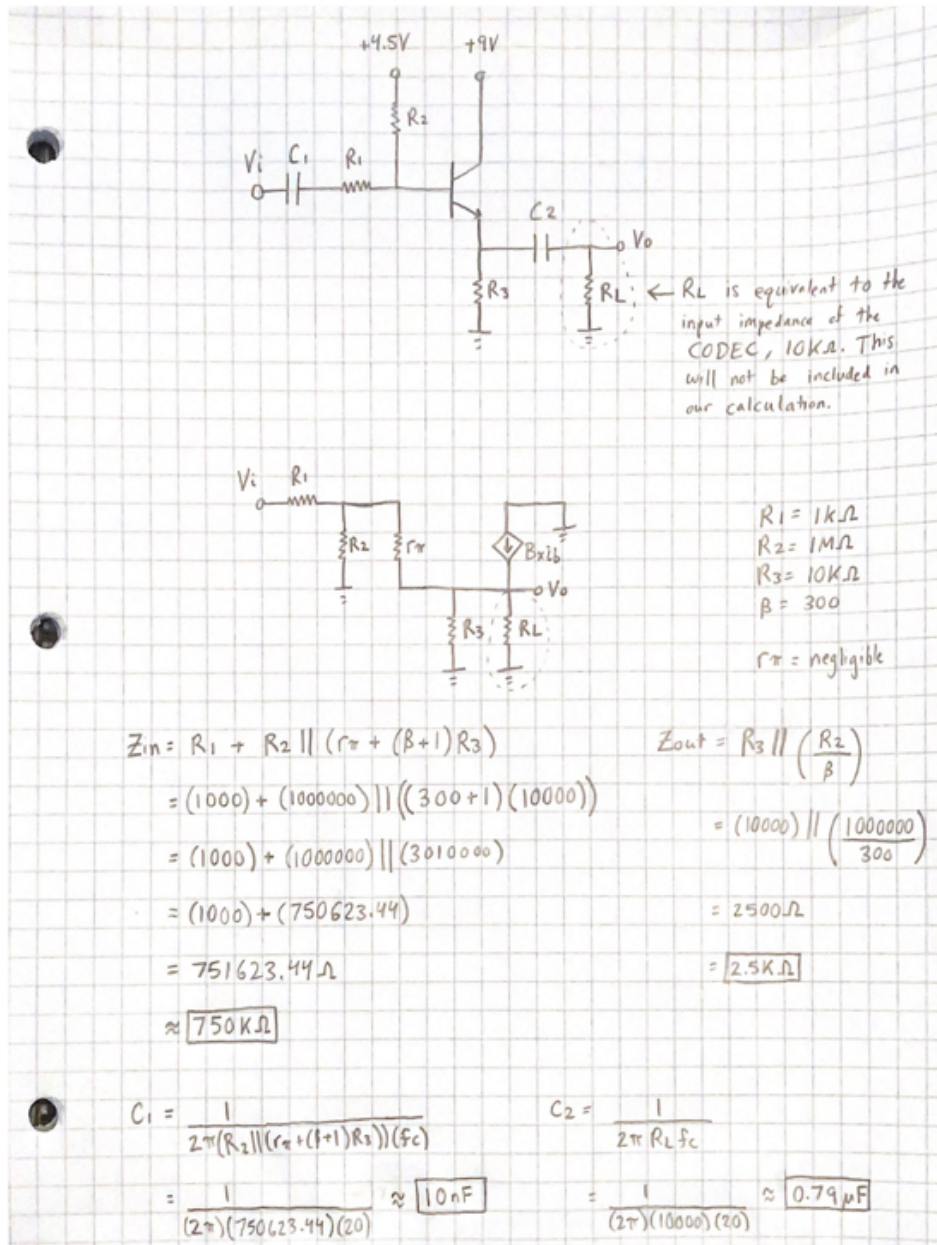 +4.5V +9V
R2
Vi C1 R1
C2
Vo
R3 RL ← RL is equivalent to the
input impedance of the
CODEC, 10KΩ. This
will not be included in
our calculation.
Vi R1
R2 rπ Bxib
Vo
R3 RL
R1 = 1kΩ
R2 = 1MΩ
R3 = 10KΩ
β = 300
rπ = negligible
Zin = R1 + R2 || (rπ + (β+1)R3)
= (1000) + (1000000) || ((300+1)(10000))
= (1000) + (1000000) || (3010000)
= (1000) + (750623.44)
= 751623.44Ω
≈ 750KΩ
Zout = R3 || (R2/β)
= (10000) || (1000000/300)
= 2500Ω
= 2.5KΩ
C1 = 1/2π(R2||(rπ+(β+1)R3))(fc)
= 1/(2π)(750623.44)(20) ≈ 10nF
C2 = 1/2π RL fc
= 1/(2π)(10000)(20) ≈ 0.79μF